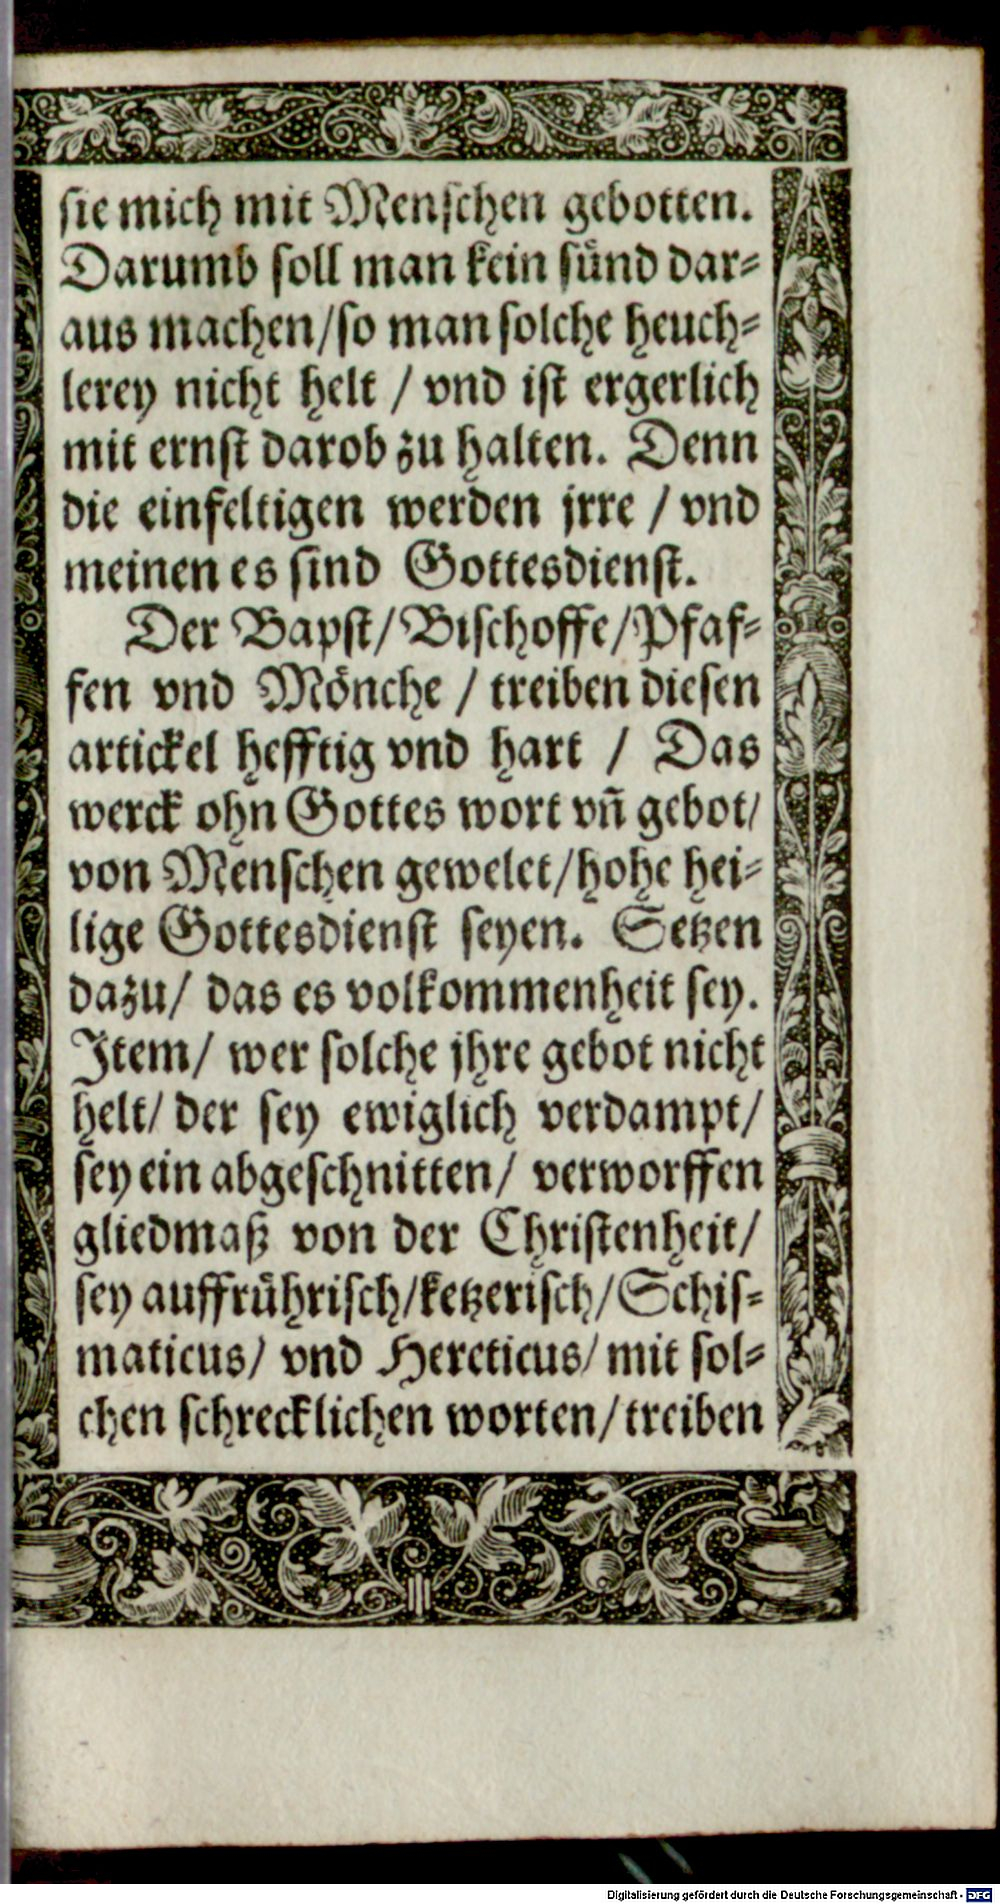 sie mich mit Menschen gebotten.
Darumb soll man kein sünd dar-
aus machen/so man solche heuch-
lerey nicht helt / vnd ist ergerlich
mit ernst darob zu halten. Denn
die einfeltigen werden jrre / vnd
meinen es sind Gottesdienst.
Der Bapst/Bischoffe/Pfaf-
fen vnd Mönche / treiben diesen
artickel hefftig vnd hart / Das
werck ohn Gottes wort vñ gebot/
von Menschen gewelet/hohe hei-
lige Gottesdienst seyen. Setzen
dazu/ das es volkommenheit sey.
Item/ wer solche jhre gebot nicht
helt/ der sey ewiglich verdampt/
sey ein abgeschnitten/ verworffen
gliedmaß von der Christenheit/
sey auffrührisch/ketzerisch/Schis-
maticus/ vnd Hereticus/ mit sol-
chen schrecklichen worten/treiben
Digitalisierung gefördert durch die Deutsche Forschungsgemeinschaft - DFG